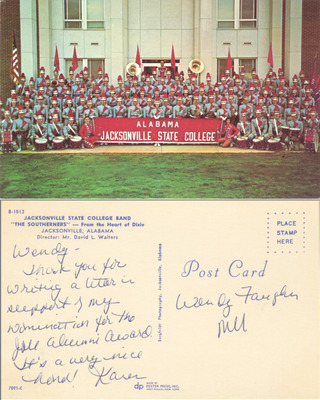 ALABAMA
JACKSONVILLE STATE COLLEGE
B-1512
JACKSONVILLE STATE COLLEGE BAND
"THE SOUTHERNERS" — From the Heart of Dixie
JACKSONVILLE, ALABAMA
Director: Mr. David L. Walters
Wendy,
Thank you for
writing a letter in
support of my
nomination for the
Alumni Award.
It's a very nice
honor! Karen
7891-C
Photography, Jacksonville, Alabama
dp
MADE BY
DEXTER PRESS, INC.
WEST NYACK, NEW YORK
Post Card
PLACE
STAMP
HERE
Wendy Faughn